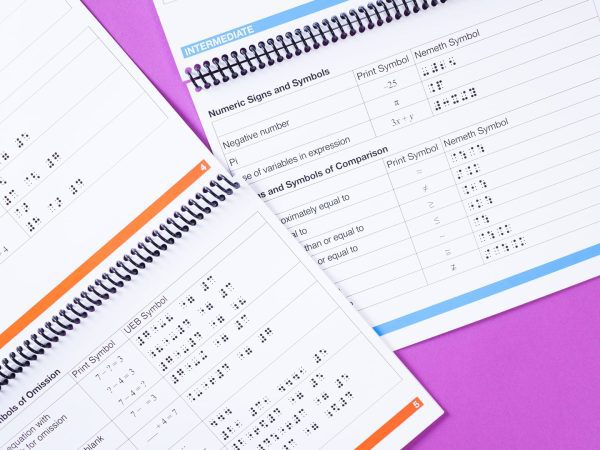 INTERMEDIATE
Numeric Signs and Symbols
Print Symbol
Nemeth Symbol
Negative number
−25
Pi
π
se of variables in expression
3x + y
ns and Symbols of Comparison
Print Symbol
Nemeth Symbol
oximately equal to
≈
al to
≠
than or equal to
≥
or equal to
≤
~
4
mbols of Omission
Print Symbol
UEB Symbol
7 − ? = 3
? − 4 = 3
7 − 4 = ?
equation with
k for omission
7 − = 3
blank
__ + 4 = 7
5